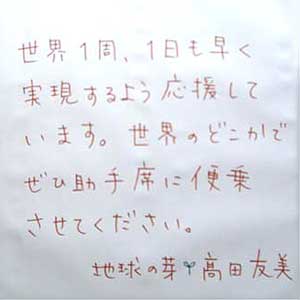 世界1周、1日も早く
実現するよう応援して
います。世界のどこかで
ぜひ助手席に便乗
させてください。
地球の芽 高田友美